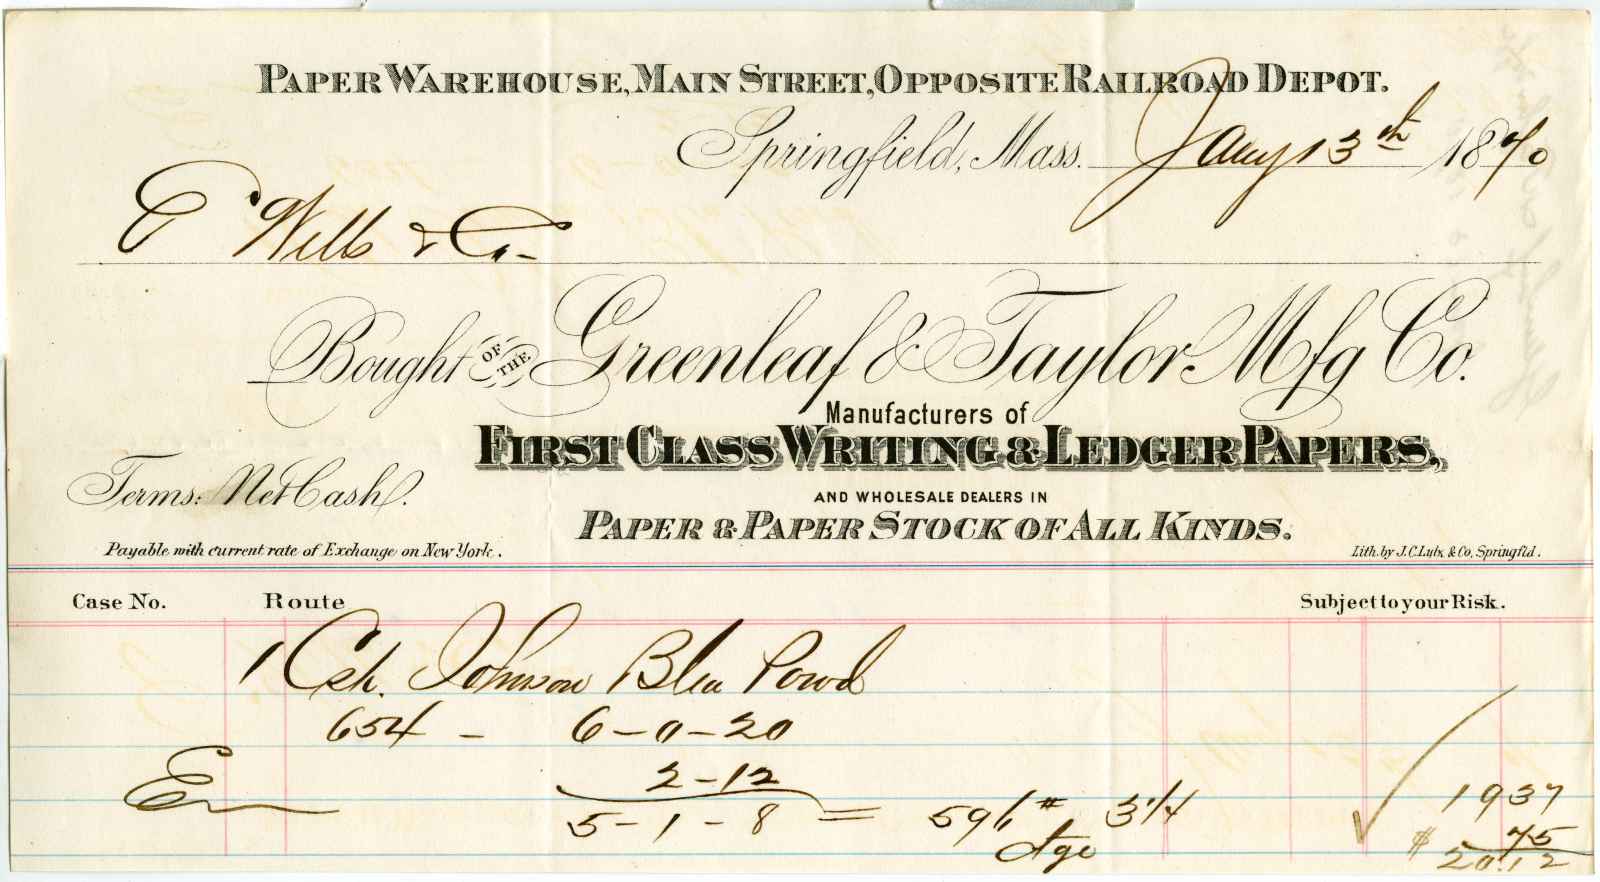 PAPER WAREHOUSE, MAIN STREET, OPPOSITE RAILROAD DEPOT.
Springfield, Mass. Jany 13th 1870
Wells & Co.
Bought OF THE Greenleaf & Taylor Mfg Co.
Manufacturers of
FIRST CLASS WRITING & LEDGER PAPERS,
Terms: Net Cash.
AND WHOLESALE DEALERS IN
PAPER & PAPER STOCK OF ALL KINDS.
Payable with current rate of Exchange on New York.
Lith. by J.C. Lutz & Co, Springfld.
Case No. Route Subject to your Risk.
1 Csk. Johnson Blea Powd
654 - 6-0-20
2-12
5-1-8 = 596# 3 1/4 1937
Ctge 75
$ 20.12